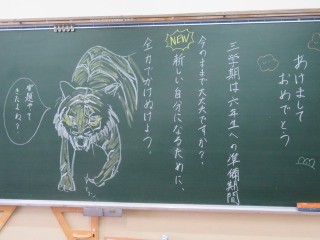 あけまして
おめでとう
三学期は六年生への準備期間
今のままで大丈夫ですか？
NEW
新しい自分になるために、
全力でかけぬけよう。
宿題やって
きたよね？